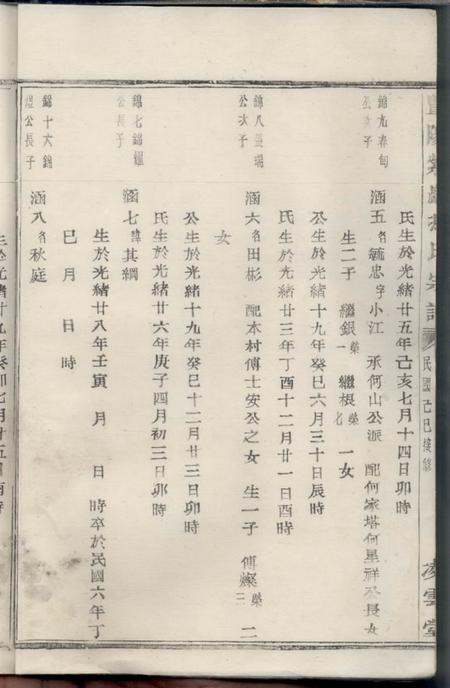 民國己巳接修
凌雲堂
氏生於光緒廿五年己亥七月十四日卯時
錦九春旬
公次子
涵五名毓忠字小江 承何山公派 配何家塔何星祥公長女
生二子 繼銀榮一 繼根榮七 一女
公生於光緒十九年癸巳六月三十日辰時
氏生於光緒廿三年丁酉十二月廿一日酉時
錦八
公次子
涵六名田彬 配本村傅士安公之女 生一子 傳燦榮三 二
女
公生於光緒十九年癸巳十二月廿三日卯時
氏生於光緒廿六年庚子四月初三日卯時
錦七錦耀
公長子
涵七諱其綱
生於光緒廿八年壬寅 月 日 時卒於民國六年丁
巳月 日 時
錦十六錦
公長子
涵八名秋庭
生於光緒廿九年癸卯七月廿五日酉時